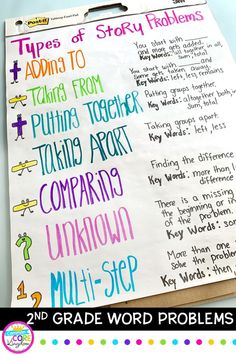 Post-it
Types of Story Problems
+ ADDING TO
You start with
and more gets added.
Key Words: all together, in all,
sum, total
- Taking From
You start with and
some gets taken away.
Key Words: left, less, remains
+ Putting Together
Putting groups together.
Key Words: altogether, both, in
sum, total
÷ TAKING APART
Taking groups apart.
Key Words: left, less
÷ COMPARING
Finding the difference
Key Words: more, than, l
difference
? UNKNOWN
There is a missing
the beginning or in
of the problem.
Key Words: so
1
2
3 MULTI-STEP
More than one
solve the problem
Key Words: then
2ND GRADE WORD PROBLEMS
CORE
Kingdom